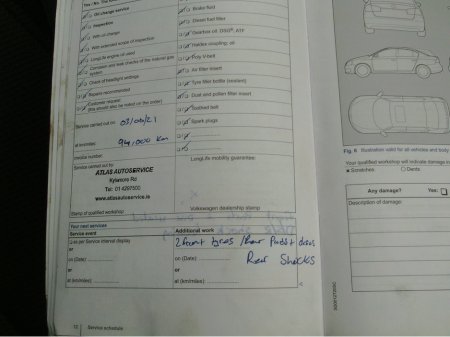 Yes / No
Oil change service
Inspection
With oil change
With extended scope of inspection
LongLife engine oil used
Corrosion and leak checks of the natural gas
system
Check of headlight settings
Repairs recommended
Customer request
(this should also be noted on the order)
Brake fluid
Diesel fuel filter
Gearbox oil, DSG®, ATF
Haldex coupling: oil
Poly V-belt
Air filter insert
Tyre filler bottle (sealant)
Dust and pollen filter insert
Toothed belt
Spark plugs
Service carried out on: 03/06/21
at km/miles: 94,000 km
Invoice number:
Service carried out by
ATLAS AUTOSERVICE
Kylemore Rd
Tel: 01 4297500
www.atlasautoservice.ie
Stamp of qualified workshop
LongLife mobility guarantee:
Volkswagen dealership stamp
Your next services
Service event
as per Service interval display
or
on (Date)
or
at (km/miles)
Additional work
2 front tyres / Rear Pads + discs
Rear Shocks
on (Date)
or
at (km/miles)
12 Service schedule
Fig. 6 Illustration valid for all vehicles and body
Your qualified workshop will indicate damage in
Scratches
Dents
Any damage? Yes:
Description of damage: